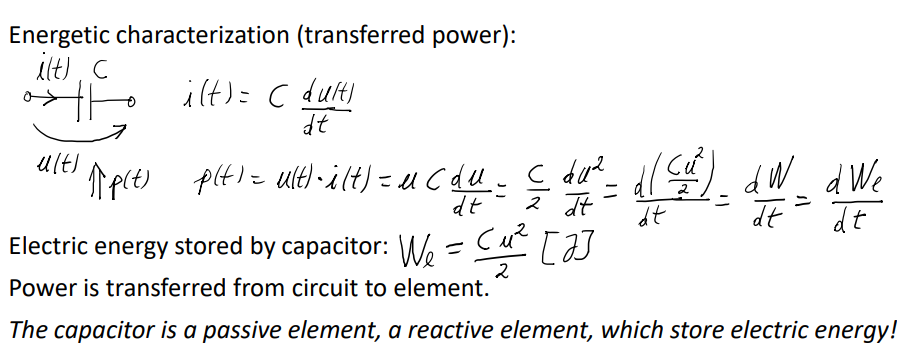 Energetic characterization (transferred power):
i(t) C
i(t) = C du(t)/dt
u(t)
p(t)
p(t) = u(t)·i(t) = u C du/dt = C/2 du²/dt = d(Cu²/2)/dt = dW/dt = dWe/dt
Electric energy stored by capacitor: We = Cu²/2 [J]
Power is transferred from circuit to element.
The capacitor is a passive element, a reactive element, which store electric energy!